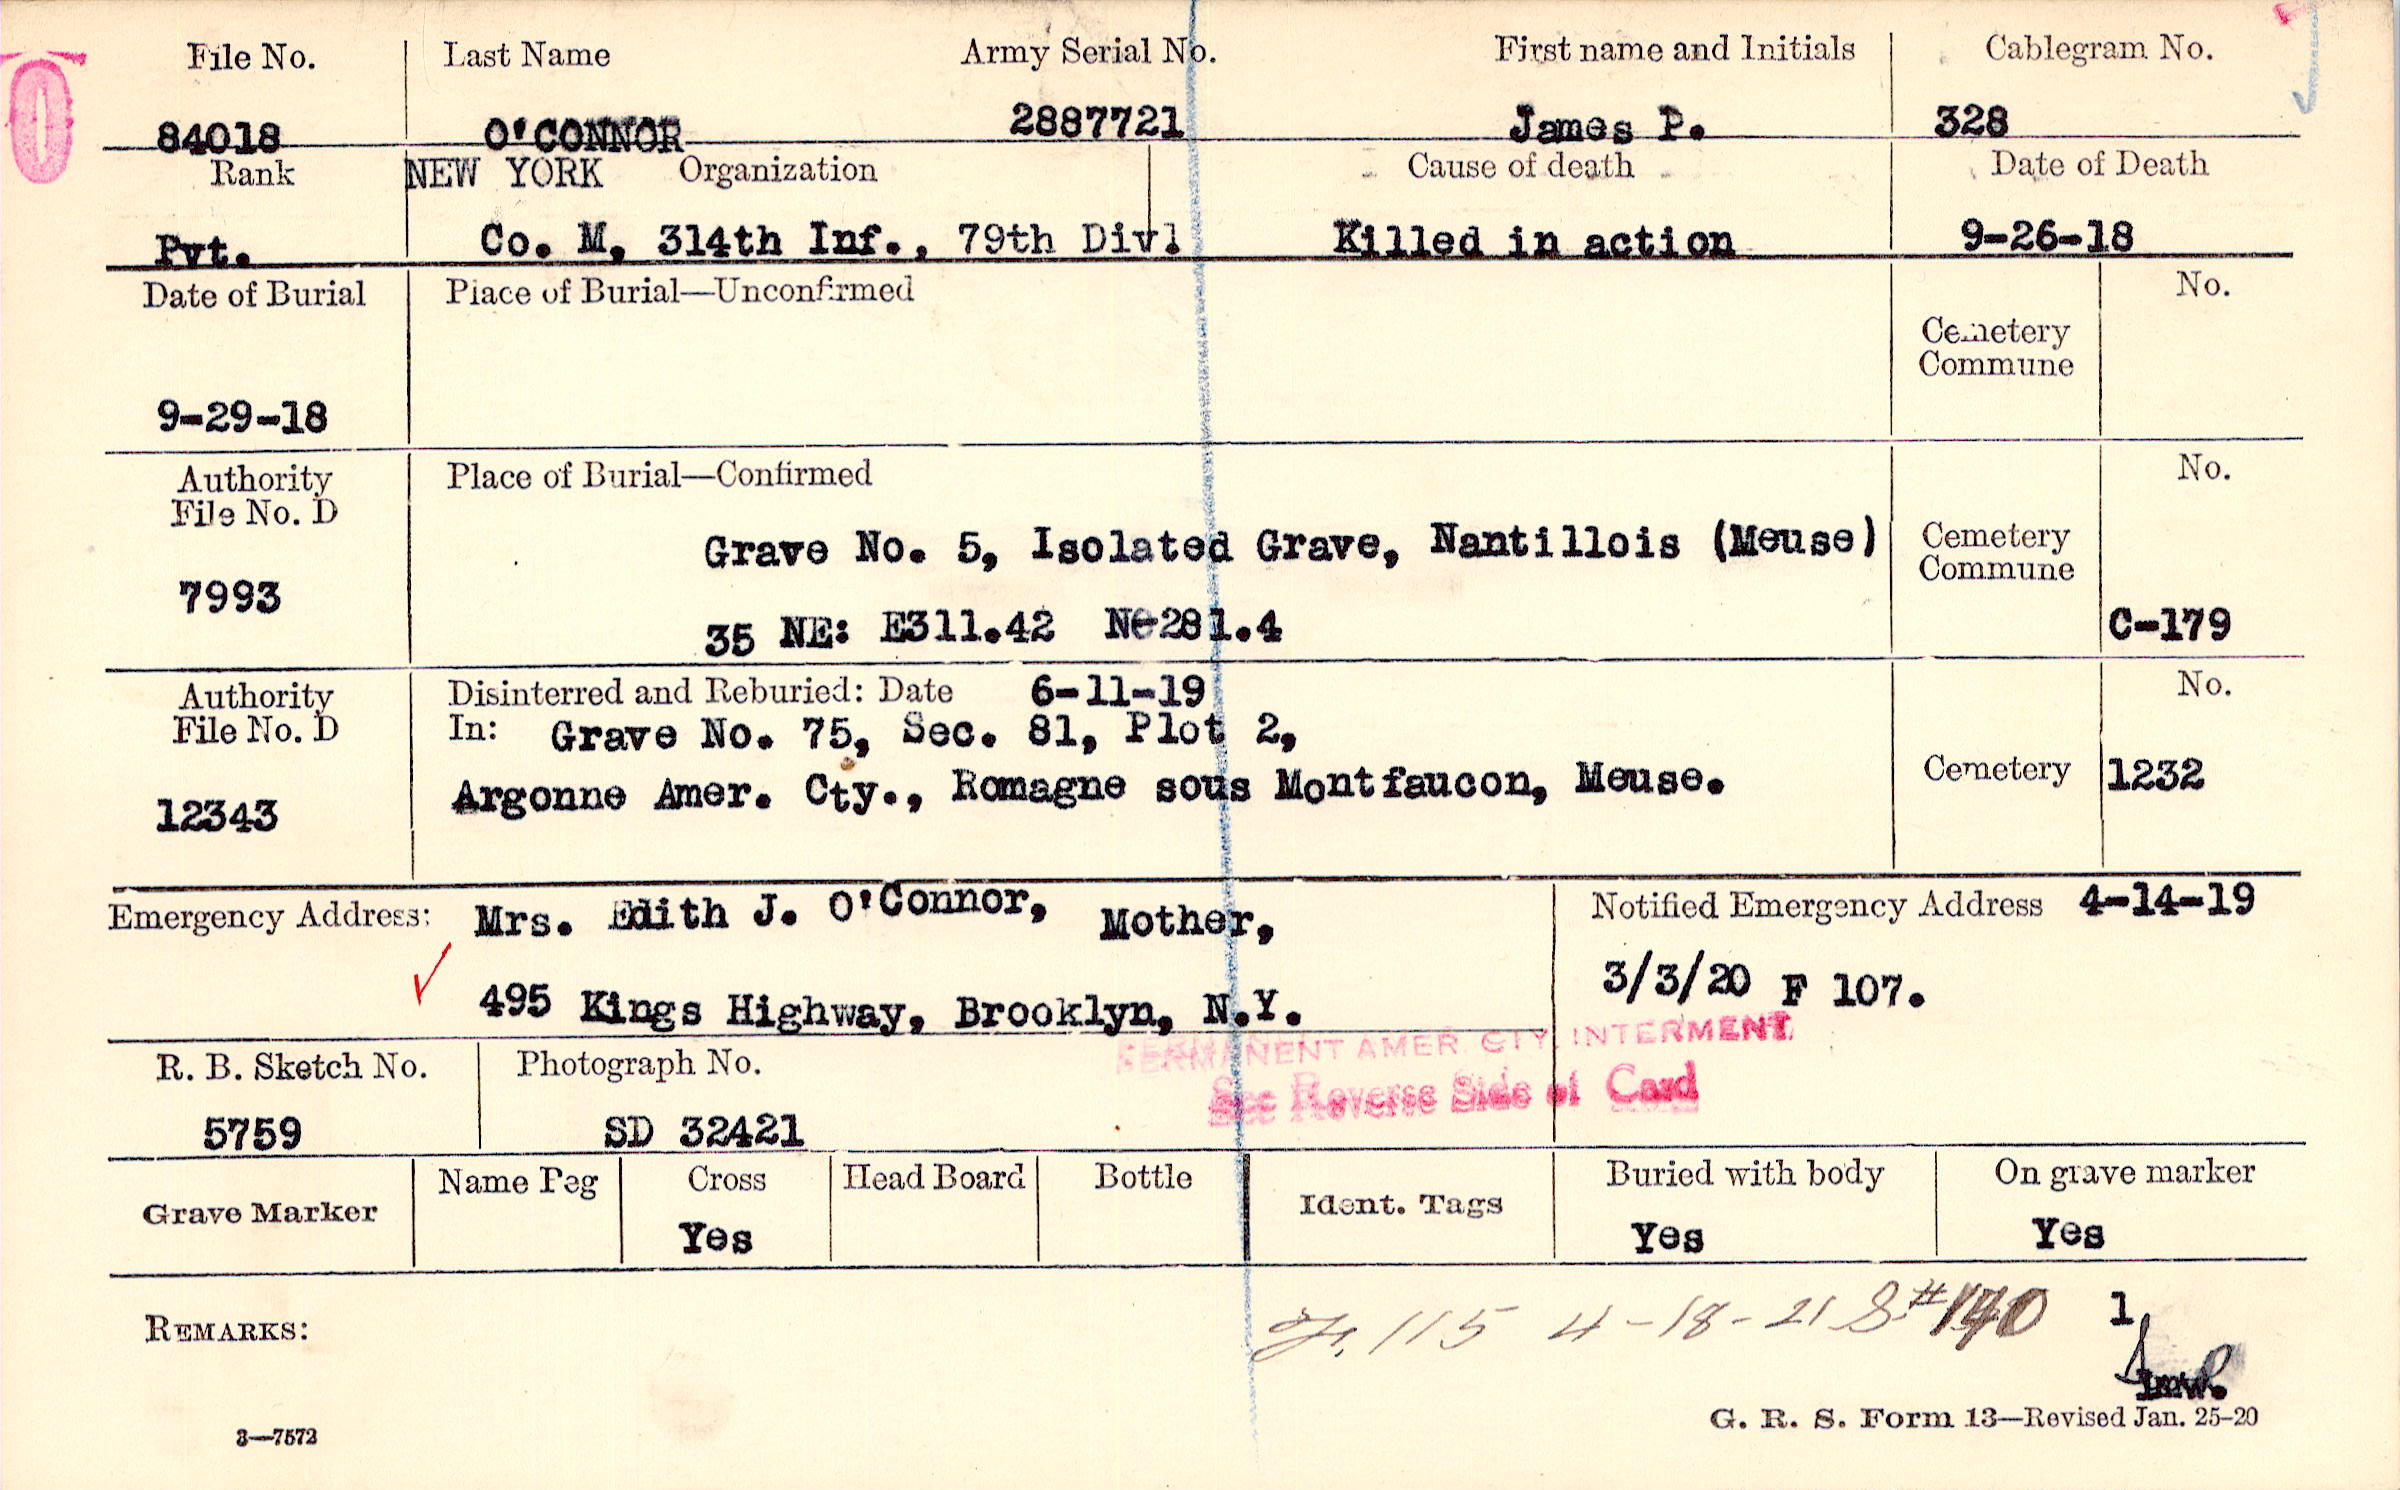 O
File No. Last Name Army Serial No. First name and Initials Cablegram No.
84018 O'CONNOR 2887721 James P. 328
Rank NEW YORK Organization Cause of death Date of Death
Pvt. Co. M, 314th Inf., 79th Div. Killed in action 9-26-18
Date of Burial Place of Burial—Unconfirmed No.
Cemetery
Commune
9-29-18
Authority Place of Burial—Confirmed No.
File No. D
Grave No. 5, Isolated Grave, Nantillois (Meuse) Cemetery
Commune
7993
35 NE: E311.42 N-281.4 C-179
Authority Disinterred and Reburied: Date 6-11-19 No.
File No. D In: Grave No. 75, Sec. 81, Plot 2,
Argonne Amer. Cty., Romagne sous Montfaucon, Meuse. Cemetery 1232
12343
Emergency Address: Mrs. Edith J. O'Connor, Mother, Notified Emergency Address 4-14-19
495 Kings Highway, Brooklyn, N.Y. 3/3/20 F 107.
PERMANENT AMER CTY INTERMENT
See Reverse Side of Card
R. B. Sketch No. Photograph No.
5759 SD 32421
Grave Marker Name Peg Cross Head Board Bottle Ident. Tags Buried with body On grave marker
Yes Yes Yes
REMARKS: 115 4-18-21 S#140 1
lmw.
3—7572 G. R. S. Form 13—Revised Jan. 25-20